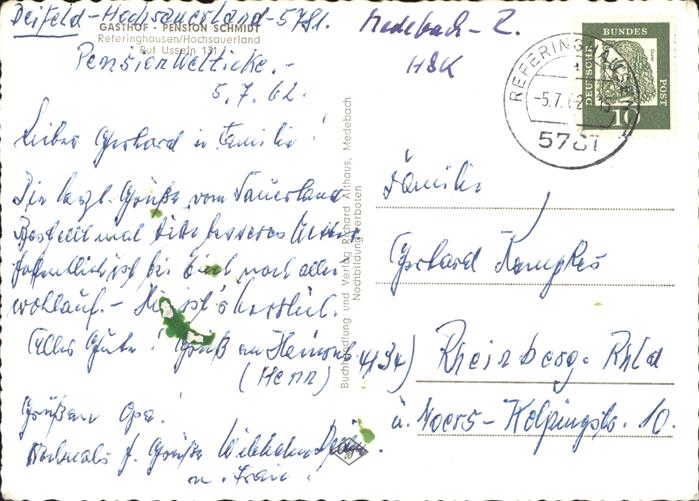 Deifeld-Hochsauerland-5781.
GASTHOF - PENSION SCHMIDT
Referinghausen/Hochsauerland
Ruf Usseln 131
Pension
5.7.62.
Lieber Gerhard u Familie!
Die herzl. Grüße vom Sauerland
besseres
hoffentlich ist bei Euch noch alles
wohlauf. - Hier ist's herrlich.
Alles Gute! Gruß an Heinrich
(Henn)
Grüßen Opa!
Nochmals f. Grüße Wilhelm
u. Frau.
Buchhandlung und Verlag Richard Althaus, Medebach
Nachbildung verboten
Medebach - Z.
HSK
REFERINGHAUSEN
-5.7.62-15
5781
DEUTSCHE BUNDESPOST
10
Familie
Gerhard Kempkes
4134) Rheinberg-Rhld
ü. Moers-Kolpingstr. 10.